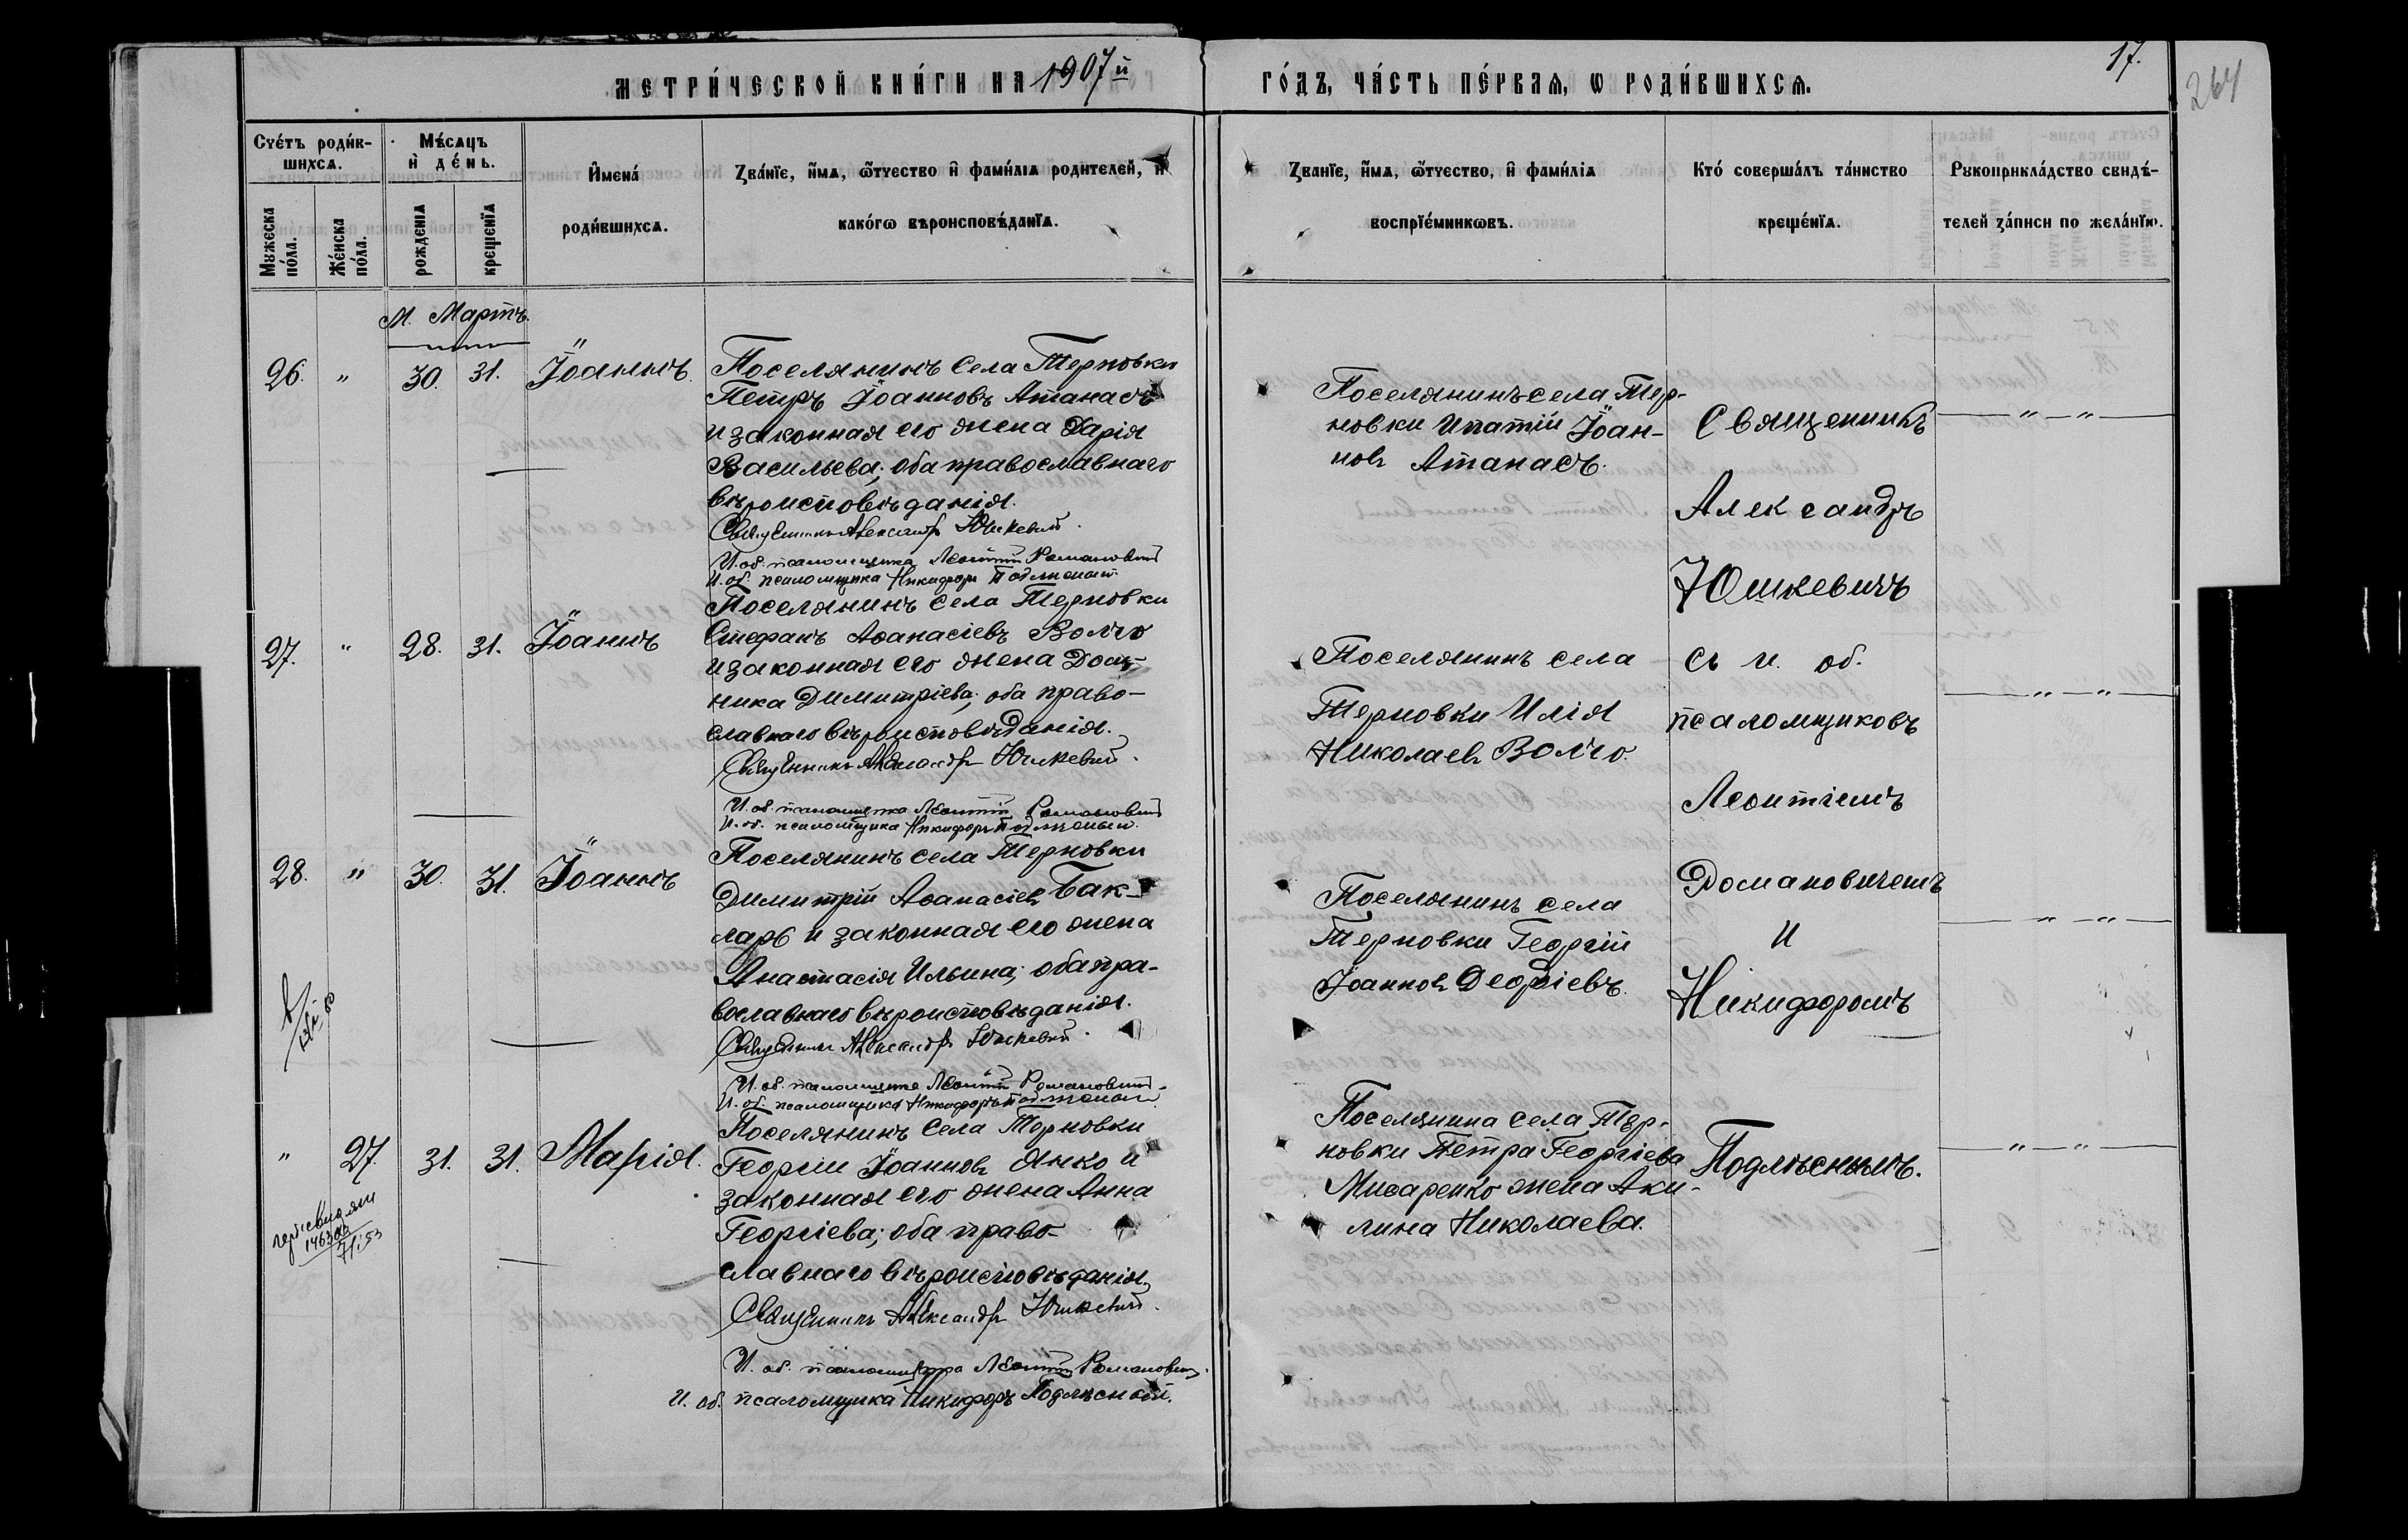 МЕТРИ́ЧЕСКОЙ КНИ́ГИ НА 1907 й
ГО́ДЪ, ЧА́СТЬ ПЕ́РВАЯ, Ѡ РОДИ́ВШИХСЯ.
17.
264
Сче́тъ роди́в-
шихся.
Мѣ́сяцъ
и҆ де́нь.
И҆мена̀
роди́вшихся.
Зва́нїе, и҆́мя, ѻ҆́тчество и҆ фами́лїя родителей, и҆
како́гѡ вѣроисповѣ́данїя.
Зва́нїе, и҆́мя, ѻ҆́тчество, и҆ фами́лїя
воспрїе́мниковъ.
Кто̀ соверша́лъ та́инство
креще́нїя.
Рꙋкоприкла́дство свидѣ́-
телей за́писи по жела́нїю.
Мꙋжеска
по́ла.
Же́нска
по́ла.
рожденїя
крещенїя
М. Мартъ.
26. " 30. 31. Іоаннъ.
Поселянинъ села Терновки
Петръ Іоанновъ Атанасъ
и законная его жена Дарія
Васильева; оба православнаго
вѣроисповѣданія.
Священникъ Александръ Юшкевич.
И. об. псаломщика Леонтій Романович
И. об. псаломщика Никифоръ Подлѣсный.
Поселянинъ села Тер-
новки Ипатій Іоан-
новъ Атанасъ.
Священникъ
Александръ
Юшкевичъ
съ и. об.
псаломщиковъ
Леонтіемъ
Романовичемъ
и
Никифоромъ
Подлѣснымъ.
— " — " —
27. " 28. 31. Іоаннъ
Поселянинъ села Терновки
Стефанъ Аѳанасіевъ Волчо
и законная его жена Дом-
ника Димитріева; оба право-
славнаго вѣроисповѣданія.
Священникъ Александръ Юшкевич.
И. об. псаломщика Леонтій Романович
И. об. псаломщика Никифоръ Подлѣсный.
Поселянинъ села
Терновки Илія
Николаевъ Волчо.
— " — " —
28. " 30. 31. Іоаннъ
Поселянинъ села Терновки
Димитрій Аѳанасіевъ Бак-
ларь и законная его жена
Анастасія Ильина; оба пра-
вославнаго вѣроисповѣданія.
Священникъ Александръ Юшкевич.
И. об. псаломщика Леонтій Романович.
И. об. псаломщика Никифоръ Подлѣсный.
Поселянинъ села
Терновки Георгій
Іоанновъ Деордіевъ.
— " — " —
" 27. 31. 31. Марія.
Поселянинъ села Терновки
Георгій Іоанновъ Янко и
законная его жена Анна
Георгіева; оба право-
славнаго вѣроисповѣданія.
Священникъ Александръ Юшкевич.
И. об. псаломщика Леонтій Романович.
И. об. псаломщика Никифоръ Подлѣсный.
Поселянина села Тер-
новки Петра Георгіева
Мисаренко жена Аки-
лина Николаева.
— " — " —